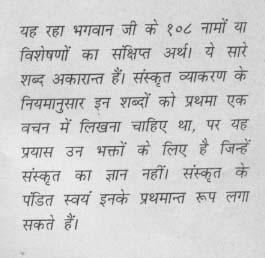 यह रहा भगवान जी के १०८ नामों या
विशेषणों का संक्षिप्त अर्थ। ये सारे
शब्द अकारान्त हैं। संस्कृत व्याकरण के
नियमानुसार इन शब्दों को प्रथमा एक
वचन में लिखना चाहिए था, पर यह
प्रयास उन भक्तों के लिए है जिन्हें
संस्कृत का ज्ञान नहीं। संस्कृत के
पंडित स्वयं इनके प्रथमान्त रूप लगा
सकते हैं।